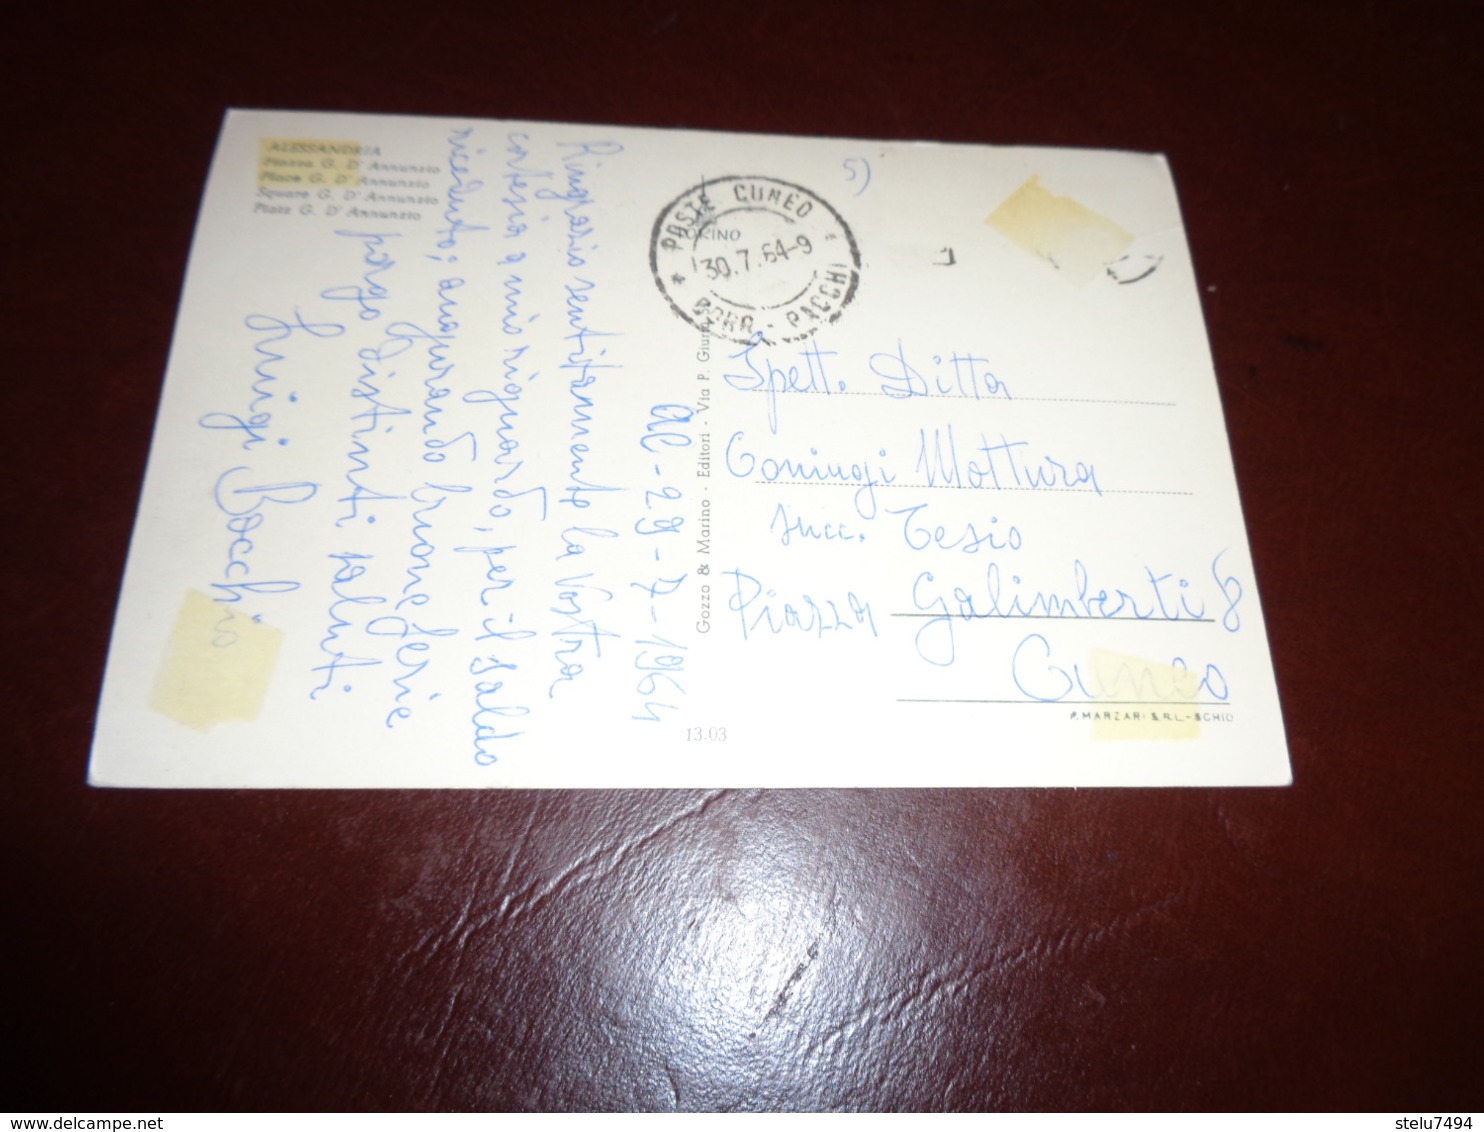 ALESSANDRIA
Piazza G. D'Annunzio
Place G. D'Annunzio
Square G. D'Annunzio
Platz G. D'Annunzio
Al-29-7-1964
Ringrazio sentitamente la Vostra
cortesia a mio riguardo, per il saldo
ricevuto; augurando buone ferie
porgo distinti saluti
Luigi Bocchio
Gozzo & Marino - Editori - Via P. Giuria
TORINO
13.03
5)
POSTE CUNEO
30.7.64-9
CORR - PACCHI
Spett. Ditta
Coniugi Mottura
succ. Tesio
Piazza Galimberti 8
Cuneo
P. MARZARI S.R.L. - SCHIO
delcampe.net
stelu7494